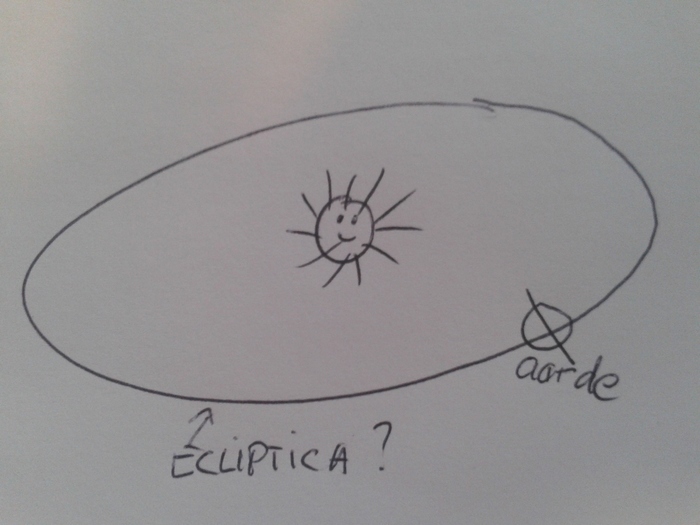 aarde
ECLIPTICA?